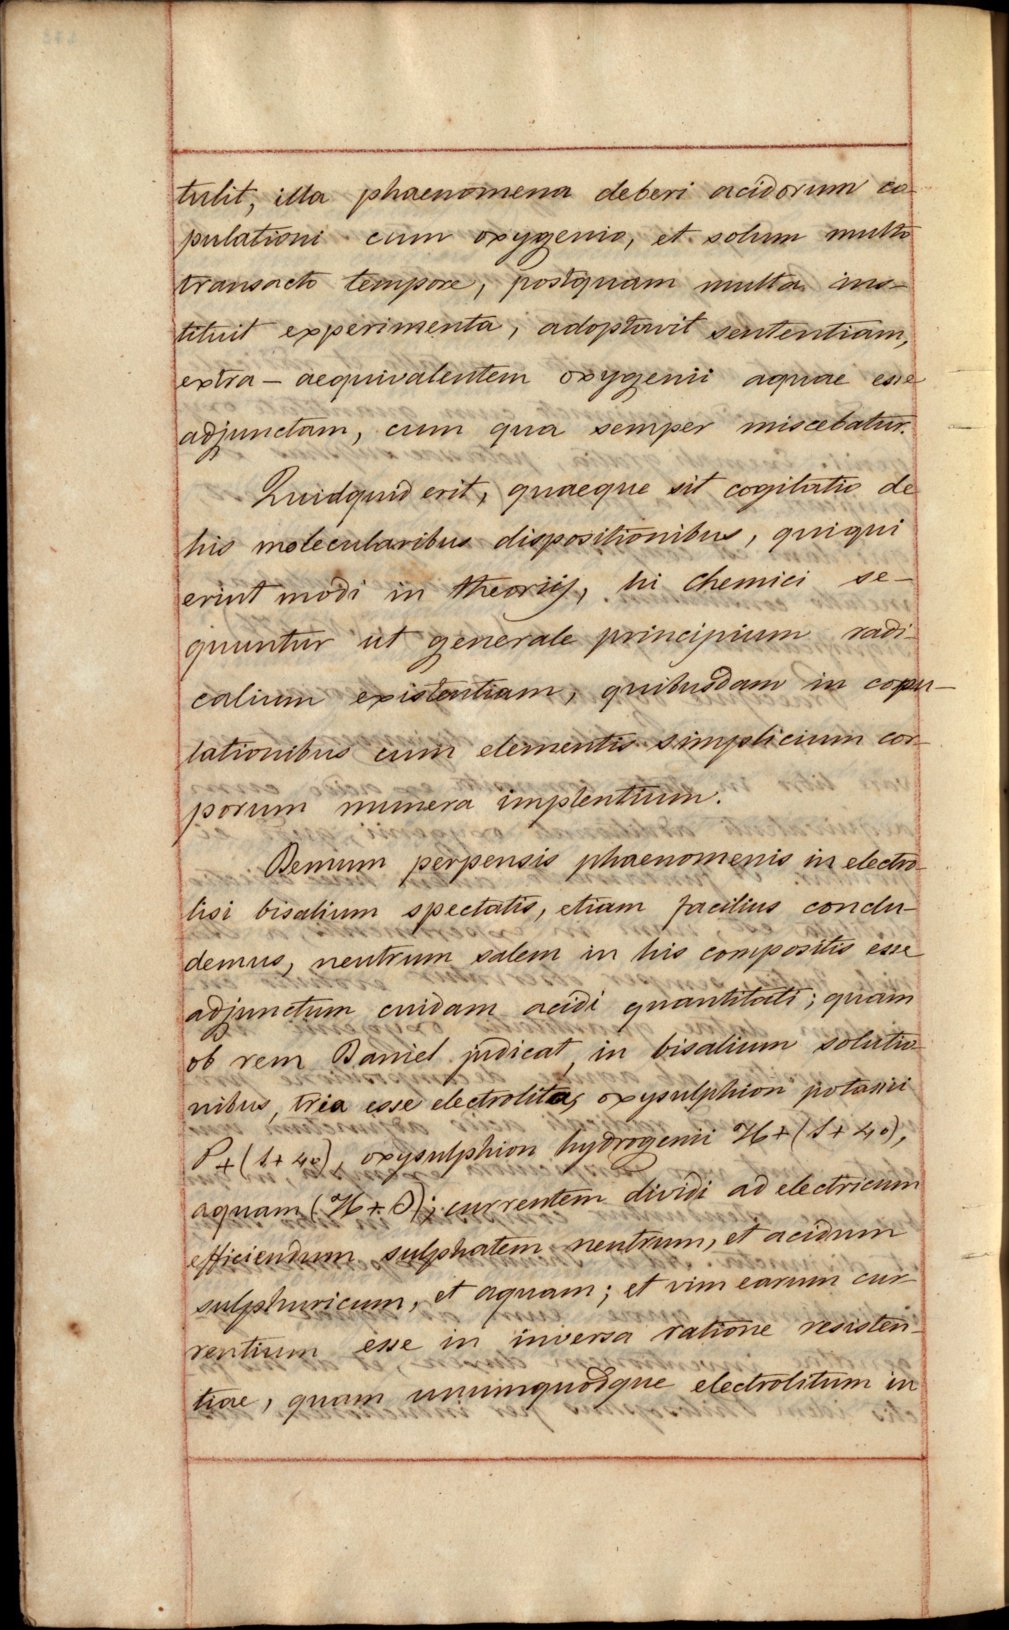 tulit, illa phaenomena deberi acidorum co-
pulationi cum oxygenio, et solum multo
transacto tempore, postquam multa ins-
tituit experimenta, adoptavit sententiam,
extra-aequivalentem oxygenii aquae esse
adjunctam, cum qua semper miscebatur.
Quidquid erit, quaeque sit cogitatio de
his molecularibus dispositionibus, quiqui
erint modi in theoriis, hi chemici se-
quuntur ut generale principium radi-
calium existentiam, quibusdam in copu-
lationibus cum elementis simplicium cor-
porum munera implentium.
Demum perpensis phaenomenis in electro-
lisi bisalium spectatis, etiam facilius conclu-
demus, neutrum salem in his compositis esse
adjunctum cuidam acidi quantitati; quam
ob rem Daniel judicat, in bisalium solutio-
nibus, tria esse electrolita, oxysulphion potassii
P+(S+4O), oxysulphion hydrogenii H+(S+4O),
aquam (H+O); currentem dividi ad electricum
efficiendum sulphatem neutrum, et acidum
sulphuricum, et aquam; et vim earum cur-
rentium esse in inversa ratione resisten-
tiae, quam unumquodque electrolitum in